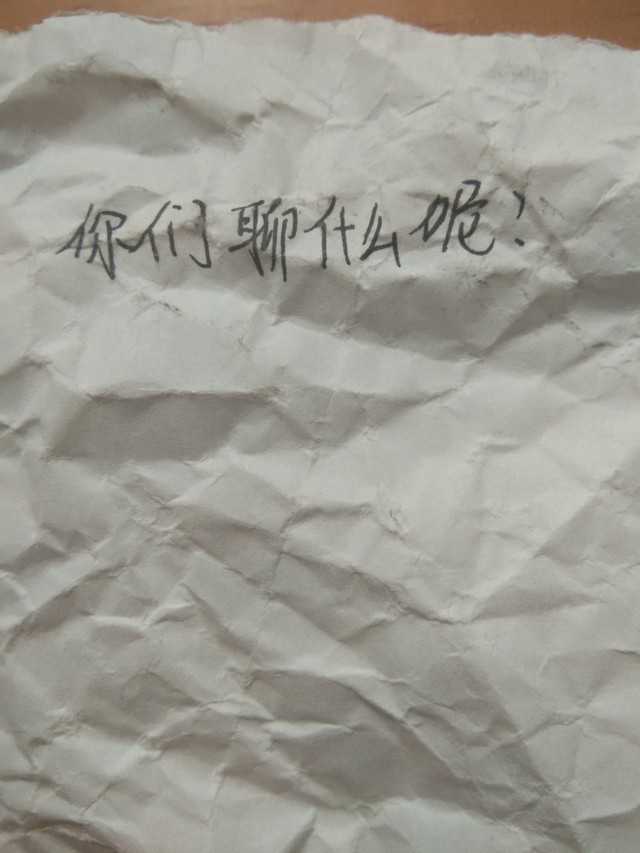 你们聊什么呢?